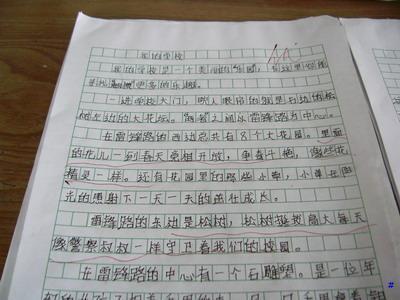 我的学校
我的学校是一个美丽的"乐园",在这里
更多的乐趣。
一进学校大门,映入眼帘的就是右边的松
树左边的大花坛。雷锋路为中心。
在雷锋路的西边总共有8个大花园。里面
的花儿一到春天竞相开放,争奇斗艳,像些花
精灵一样。还有花园里的那些小草,小草在阳
光的照射下一天一天的茁壮成长。
雷锋路的东边是松树,松树挺拔高大每天
像警察叔叔一样守卫着我们的校园。
在雷锋路的中心有一个石雕塑。是一位年